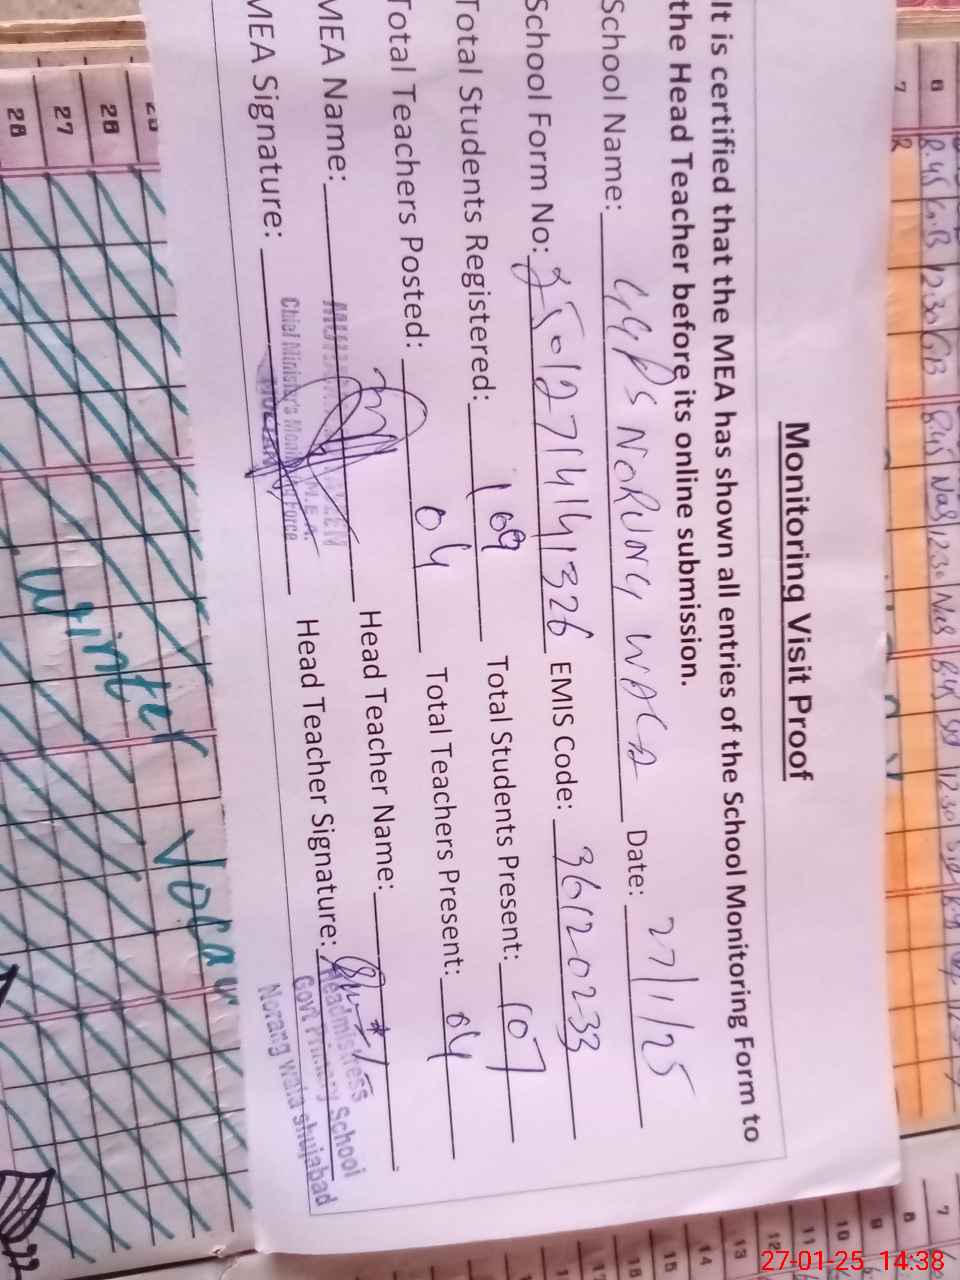 Monitoring Visit Proof
It is certified that the MEA has shown all entries of the School Monitoring Form to
the Head Teacher before its online submission.
School Name: GGPS NORUNG WALA Date: 27/1/25
School Form No: 25012714141326 EMIS Code: 36120233
Total Students Registered: 109 Total Students Present: 107
Total Teachers Posted: 04 Total Teachers Present: 04
MEA Name: Head Teacher Name:
MEA Signature: Head Teacher Signature:
Chief Minister's Force
Headmistress
Govt Primary School
Norang wala shujabad
Winter Vocau
26
27
28
6
7
8.45 G.B 12.30 GB 8.45 Nas 12.30 Nas
R
7
8
9
10
11
12
13
14
15
16
27-01-25 14:38